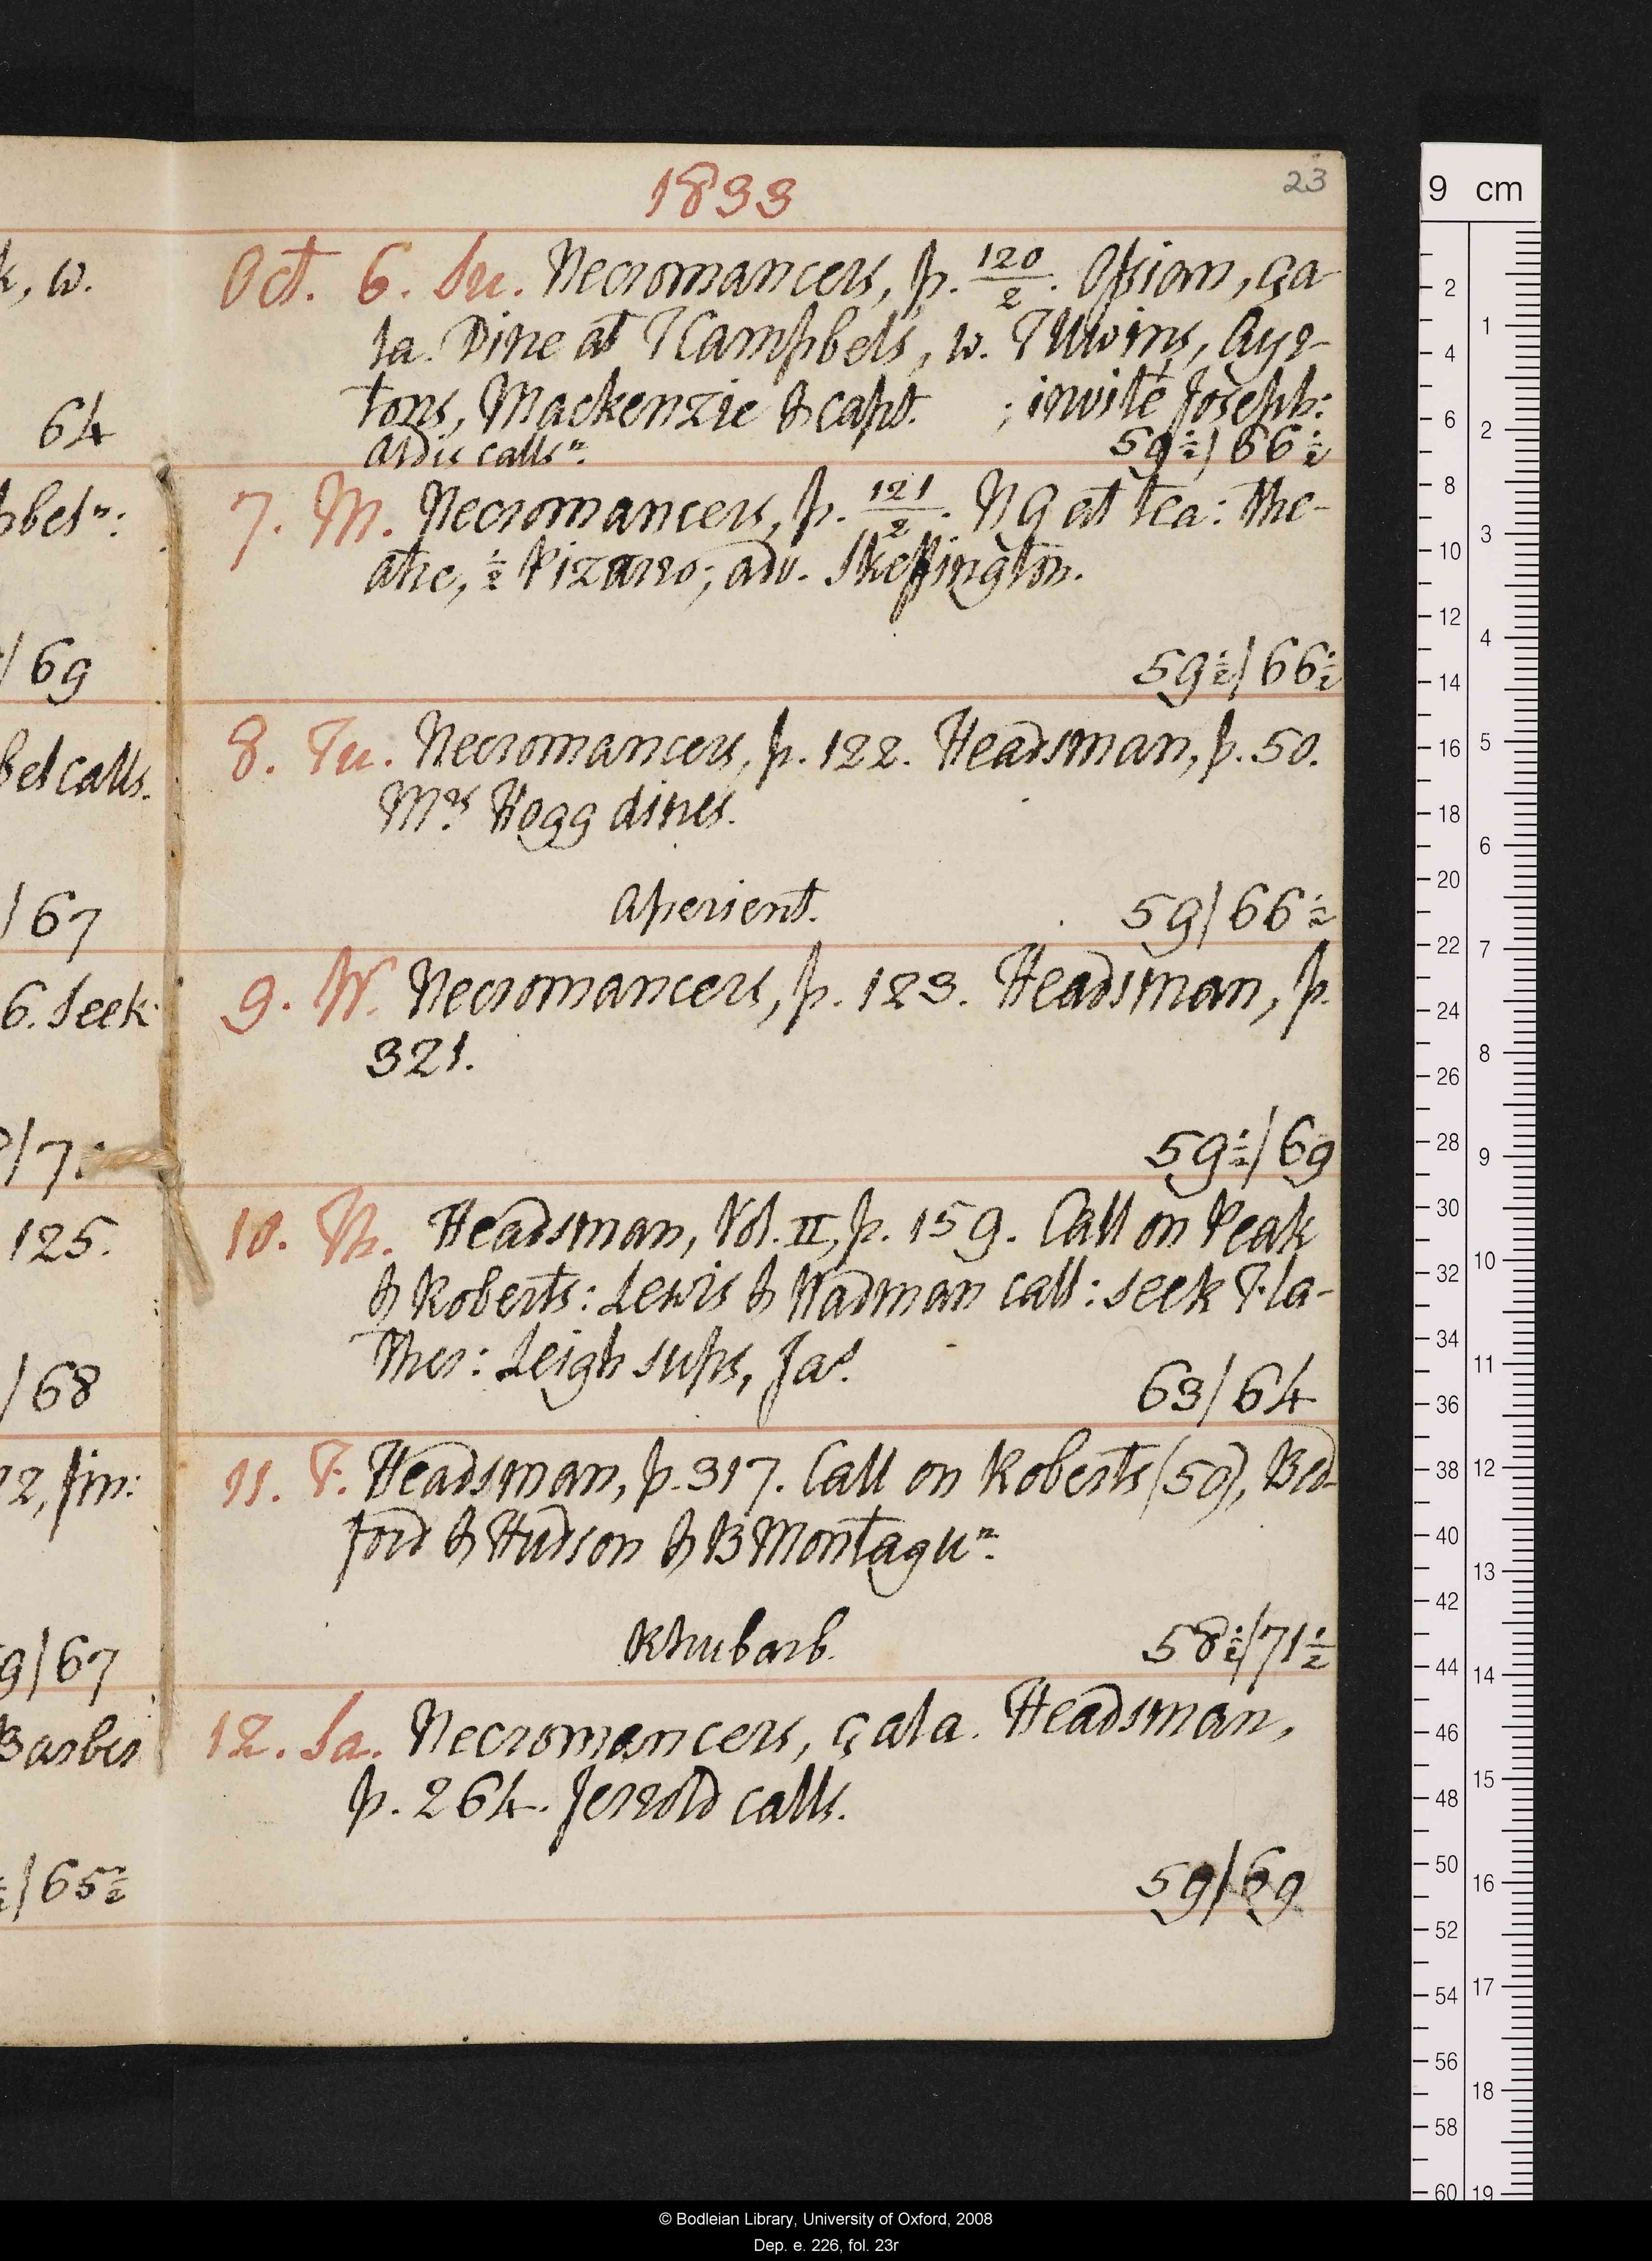 1833
23
Oct. 6. Su. Necromancers, p. 120/2. Ossian, ça-
la. Dine at T Campbel's, w. T Uwins, Ayr-
tons, Mackenzie & capt. ; invité Joseph:
Ardis callsn.
59½/66½
7. M. Necromancers, p. 121/2. N G at tea: The-
atre, ½ Pizarro; adv. Skeffington.
59½/66½
8. Tu. Necromancers, p. 122. Headsman, p. 50.
Mrs Hogg dines.
Aperient. 59/66½
9. W. Necromancers, p. 123. Headsman, p.
321.
59½/69
10. Th. Headsman, Vol. II, p. 159. Call on Peak
& Roberts: Lewis & Wadman call: seek F. la-
ther: Leigh sups, Jas.
63/64
11. F. Headsman, p. 317. Call on Roberts (50), Bed-
ford & Hudson & B Montagu n.
Rhubarb. 58½/71½
12. Sa. Necromancers, çala. Headsman,
p. 264. Jerrold calls.
59/69
k, w.
64
pbel n:
/69
bel calls.
/67
6. Seek
/7
125.
/68
2, fin:
9/67
Barber
/65½
9 cm
2 4 6 8 10 12 14 16 18 20 22 24 26 28 30 32 34 36 38 40 42 44 46 48 50 52 54 56 58 60
1 2 3 4 5 6 7 8 9 10 11 12 13 14 15 16 17 18 19
© Bodleian Library, University of Oxford, 2008
Dep. e. 226, fol. 23r